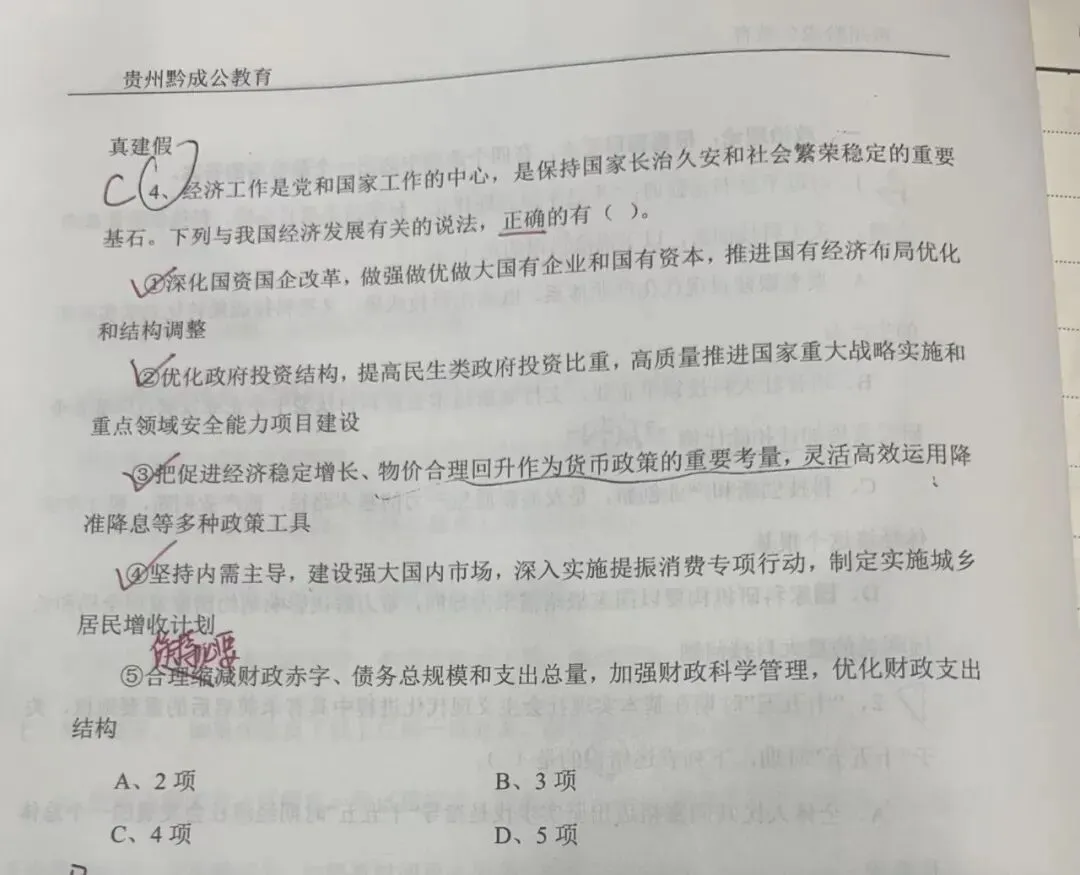 贵州黔成公教育
真建假
C 4、经济工作是党和国家工作的中心，是保持国家长治久安和社会繁荣稳定的重要
基石。下列与我国经济发展有关的说法，正确的有（ ）。
①深化国资国企改革，做强做优做大国有企业和国有资本，推进国有经济布局优化
和结构调整
②优化政府投资结构，提高民生类政府投资比重，高质量推进国家重大战略实施和
重点领域安全能力项目建设
③把促进经济稳定增长、物价合理回升作为货币政策的重要考量，灵活高效运用降
准降息等多种政策工具
④坚持内需主导，建设强大国内市场，深入实施提振消费专项行动，制定实施城乡
居民增收计划
保持必要
⑤合理缩减财政赤字、债务总规模和支出总量，加强财政科学管理，优化财政支出
结构
A、2 项 B、3 项
C、4 项 D、5 项